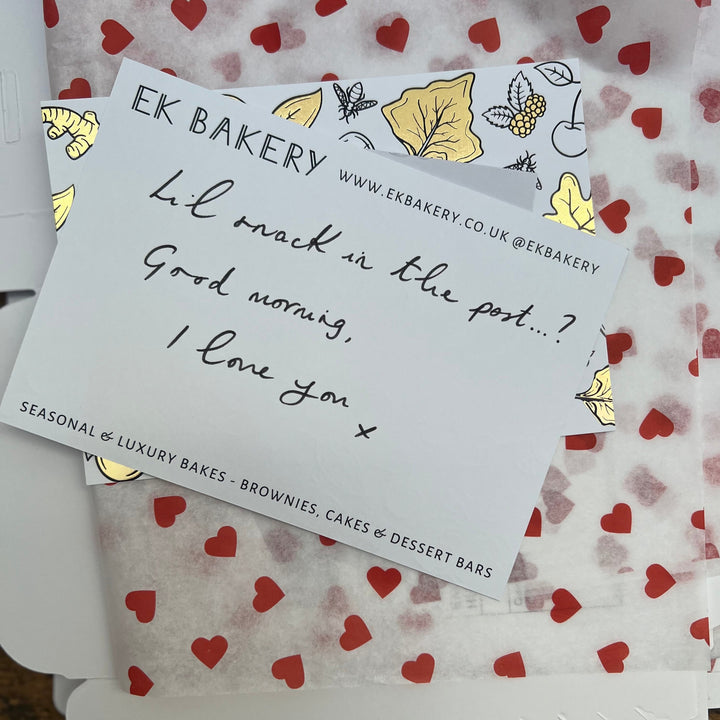 EK BAKERY
WWW.EKBAKERY.CO.UK @EKBAKERY
Lil snack in the post...?
Good morning,
I love you
x
SEASONAL & LUXURY BAKES - BROWNIES, CAKES & DESSERT BARS